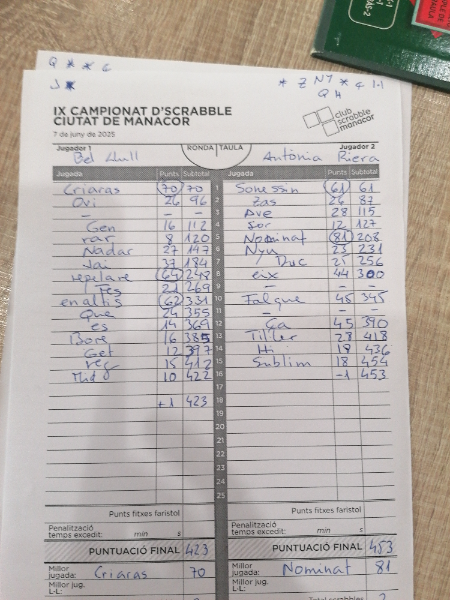 Q * * G
J *
* Z NY * G H
Q H
IX CAMPIONAT D'SCRABBLE
CIUTAT DE MANACOR
7 de juny de 2025
club
scrabble
manacor
Jugador 1
Bel Llull
RONDA TAULA
Jugador 2
Antònia Riera
Jugada Punts Subtotal Jugada Punts Subtotal
Criaras 70 70 1 Sonessin 61 61
Ovi 26 96 2 Zas 26 87
– – – 3 Ave 28 115
Gen 16 112 4 Sor 12 127
rar 8 120 5 Nominat 81 208
Nadar 27 147 6 Nyu 23 231
Jai 37 184 7 Duc 25 256
repelare 64 248 8 eix 44 300
Fes 21 269 9 – – –
enaltís 62 331 10 Falque 45 345
Que 24 355 11 – – –
es 14 369 12 Ça 45 390
Bore 16 385 13 Til·ler 28 418
Get 12 397 14 Hi 18 436
reg 15 412 15 Sublim 18 454
10 422 16 -1 453
17
+1 423 18
19
20
21
22
23
24
25
Punts fitxes faristol Punts fitxes faristol
Penalització
temps excedit: min s
Penalització
temps excedit: min s
PUNTUACIÓ FINAL 423 PUNTUACIÓ FINAL 453
Millor
jugada: Criaras 70
Millor
jugada: Nominat 81
Millor jug.
L·L:
Millor jug.
L·L: